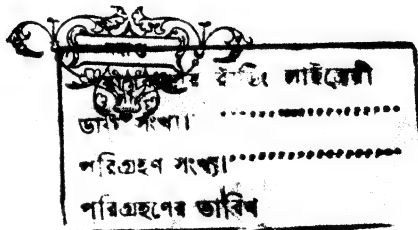 সমাপ্ত
রীডিং লাইব্রেরী
ডাক সংখ্যা
পরিগ্রহণ সংখ্যা
পরিগ্রহণের তারিখ